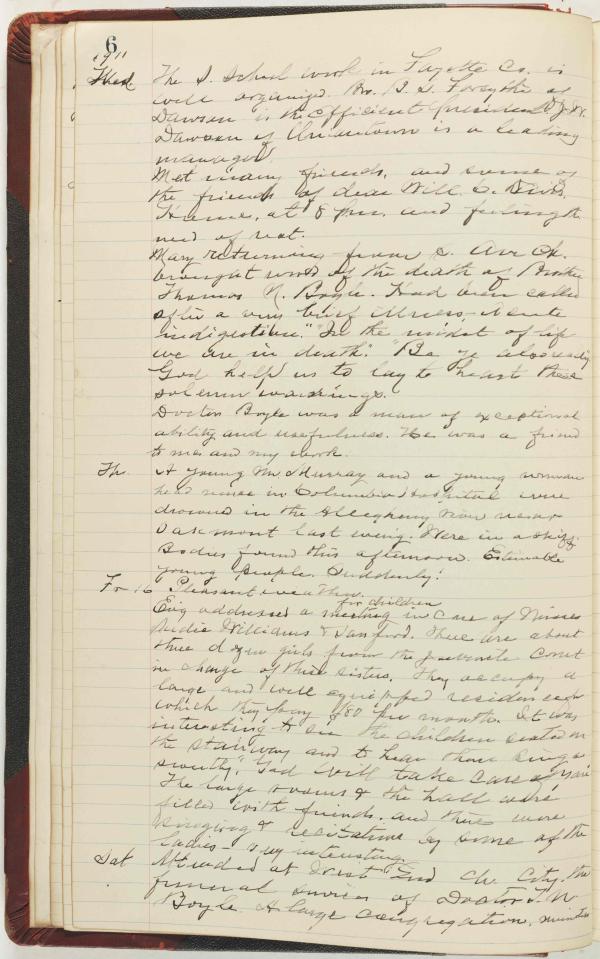 6
1911
Wed. The S. School work in Fayette Co. is
well organized. Mr. B. S. Forsythe of
Dawson is the efficient president
Dawson of Uniontown is a leading
manager.
Met many friends, and some of
the friends of dear Will C. Davis.
Home, at 8 p.m. and feeling the
need of rest.
Mary returning from S. Ave Ch.
brought word of the death of Brother
Thomas N. Boyle. Had been called
after a very brief illness - Acute
indigestion. "In the midst of life
we are in death." "Be ye also ready
God help us to lay to heart these
solemn warnings.
Doctor Boyle was a man of exceptional
ability and usefulness. He was a friend
to me and my work.
Th. A young Mr. Murray and a young woman
head nurse in Columbia Hospital were
drowned in the Allegheny River near
Oakmont last evening. Were in a skiff
Bodies found this afternoon. Estimable
young people. Suddenly!
Fr 16 Pleasant weather.
for children
Evig addressed a meeting in care of Misses
Williams & Sanford. There are about
three dozen girls from the Juvenile Court
in charge of these sisters. They occupy a
large and well equipped residence
which they pay $80 per month. It was
interesting to see the children seated on
the stairway and to hear them sing so
sweetly, "God will take care of you"
The large rooms & the hall were
filled with friends, and there were
singing & recitations by some of the
ladies - very interesting.
Sat Attended at West End Ch. City, the
funeral services of Doctor T. N
Boyle. A large congregation,